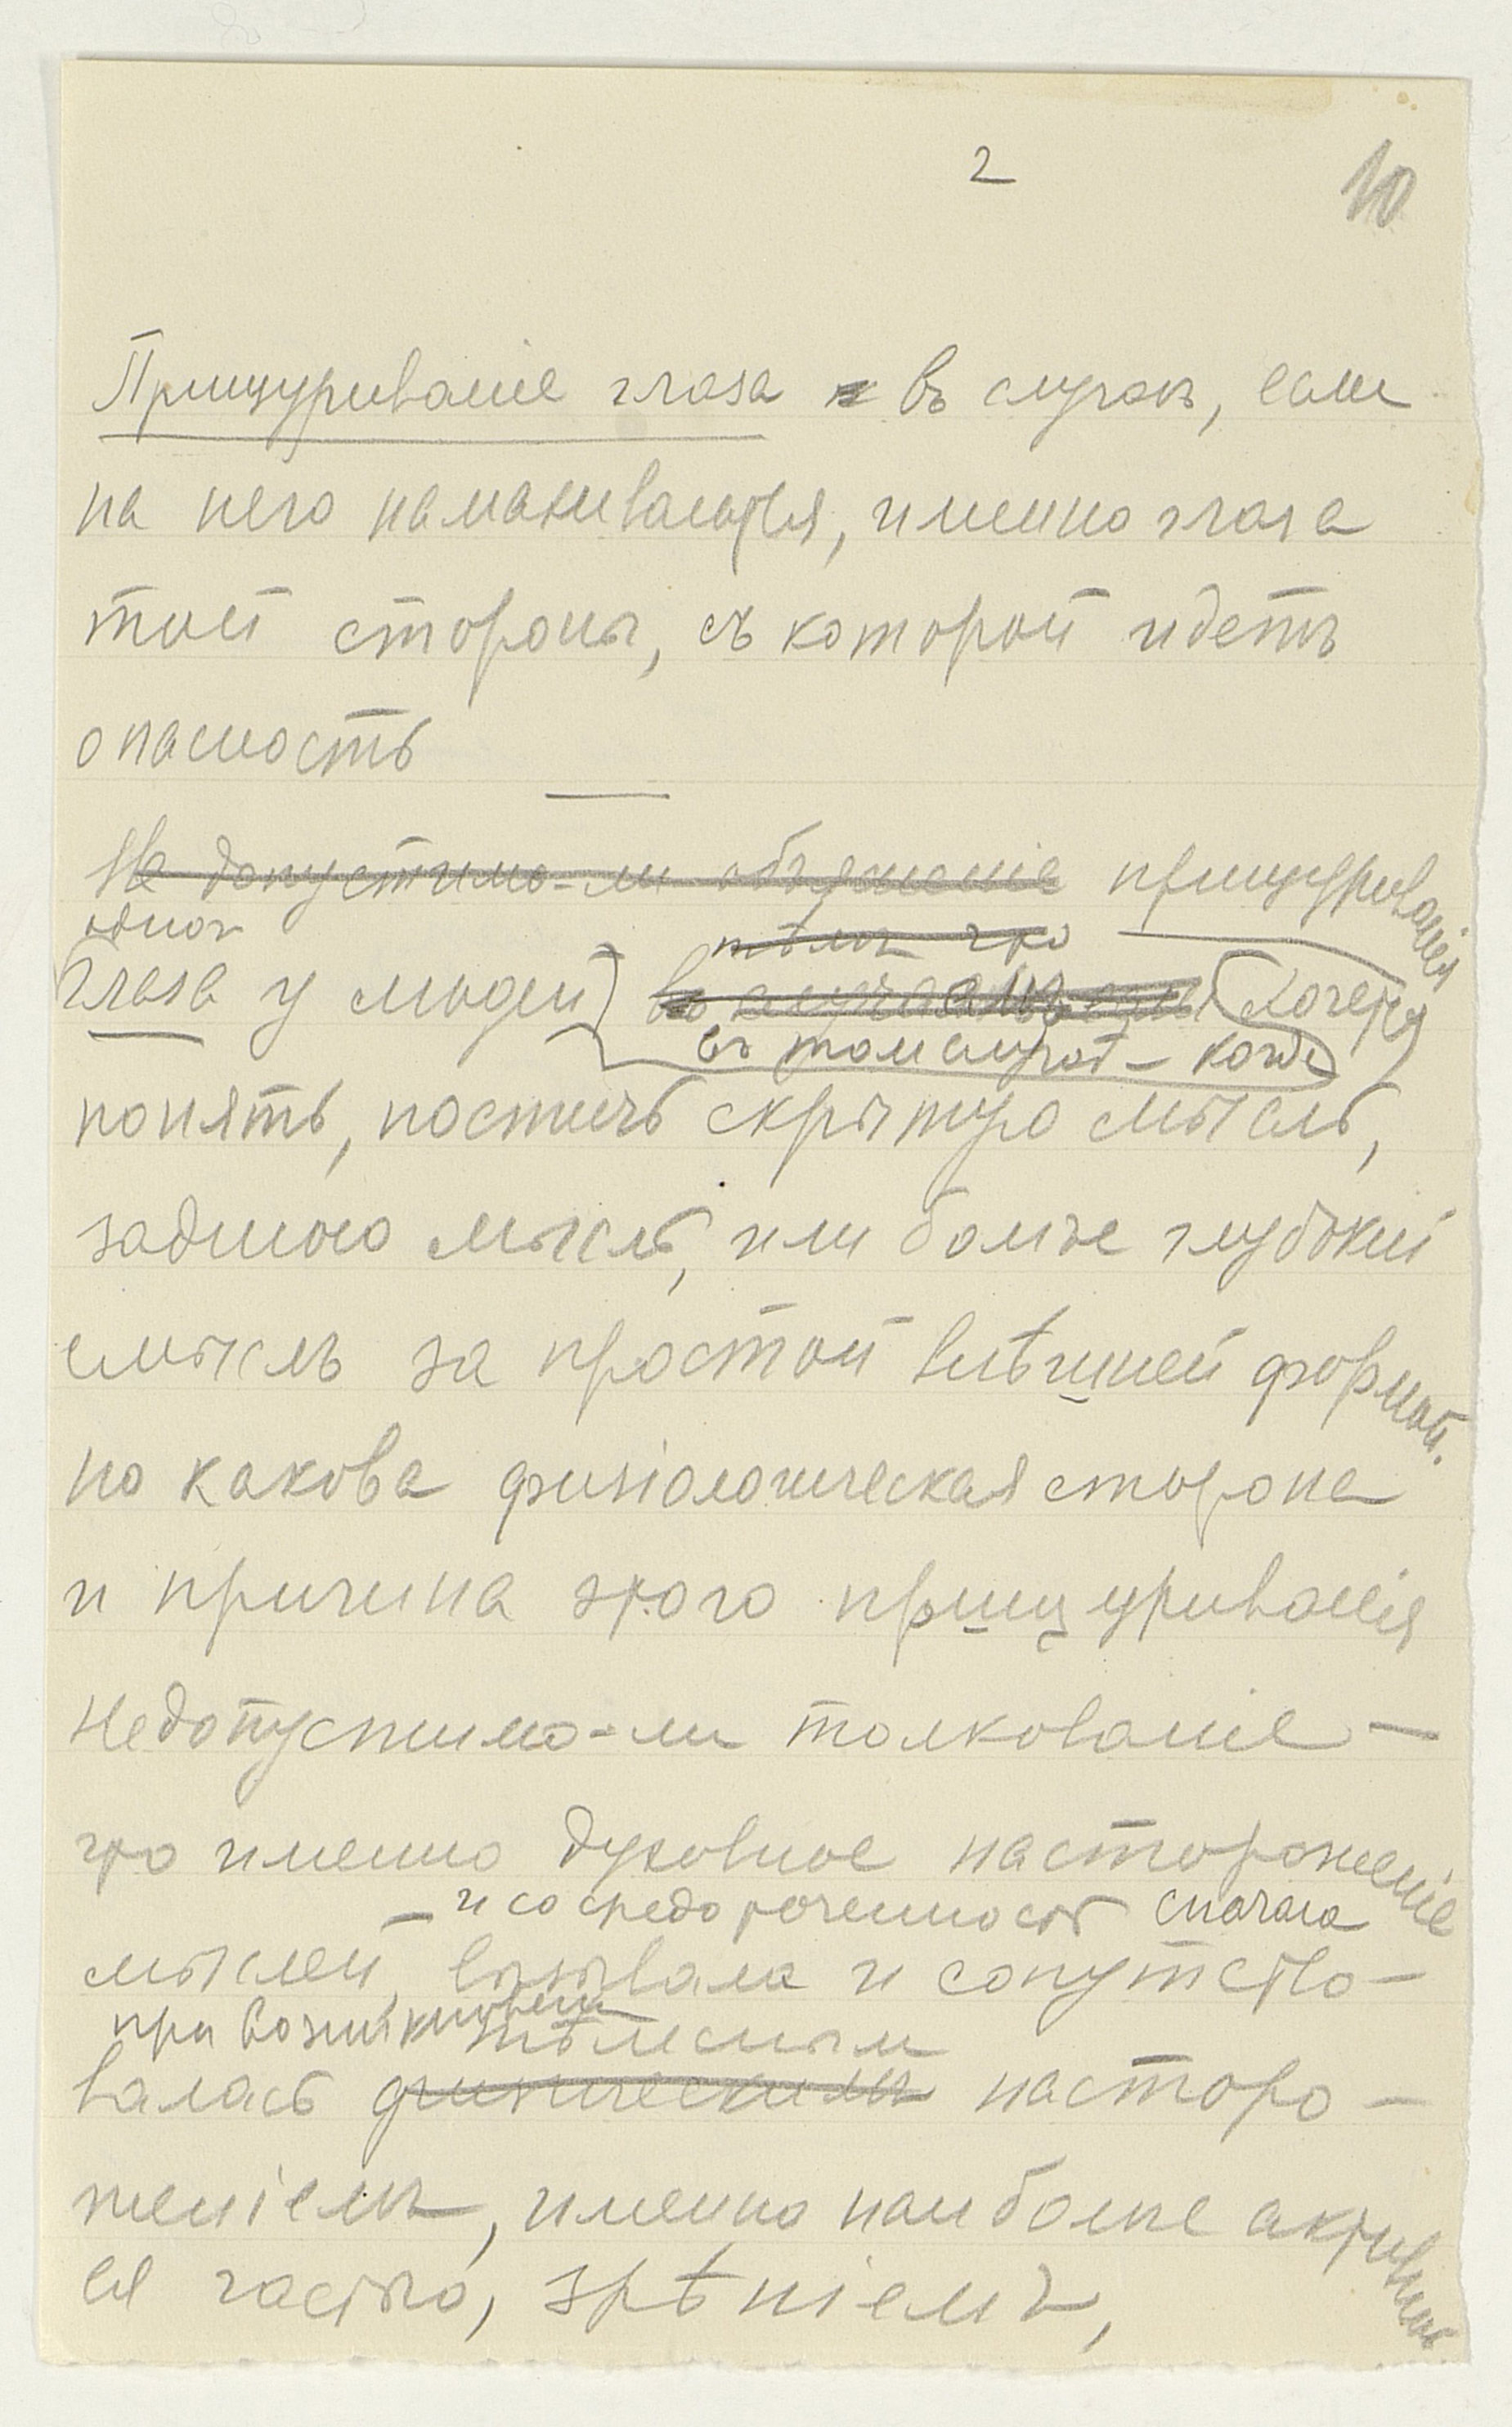 2
10
Прищуриваніе глаза въ случаѣ, если
на него намахиваются, именно глаза
той стороны, съ которой идетъ
опасность
Не допустимо-ли объясненіе прищуриванія
одного
тѣмъ что
глаза у людей) въ случаяхъ если (хочется)
въ том случаѣ – когда
понять, постичь скрытую мысль,
заднюю мысль, или болѣе глубокій
смыслъ за простой внѣшней формой.
но какова физіологическая сторона
и причина этого прищуриванія
Недопустимо-ли толкованіе –
что именно духовное настороженіе
– и сосредоточенность сначала
мыслей, вызывала и сопутство-
при возникновеніи
тѣлесным
валась физическимъ насторо-
женіемъ, именно наиболѣе активной
ея частью, зрѣніемъ,